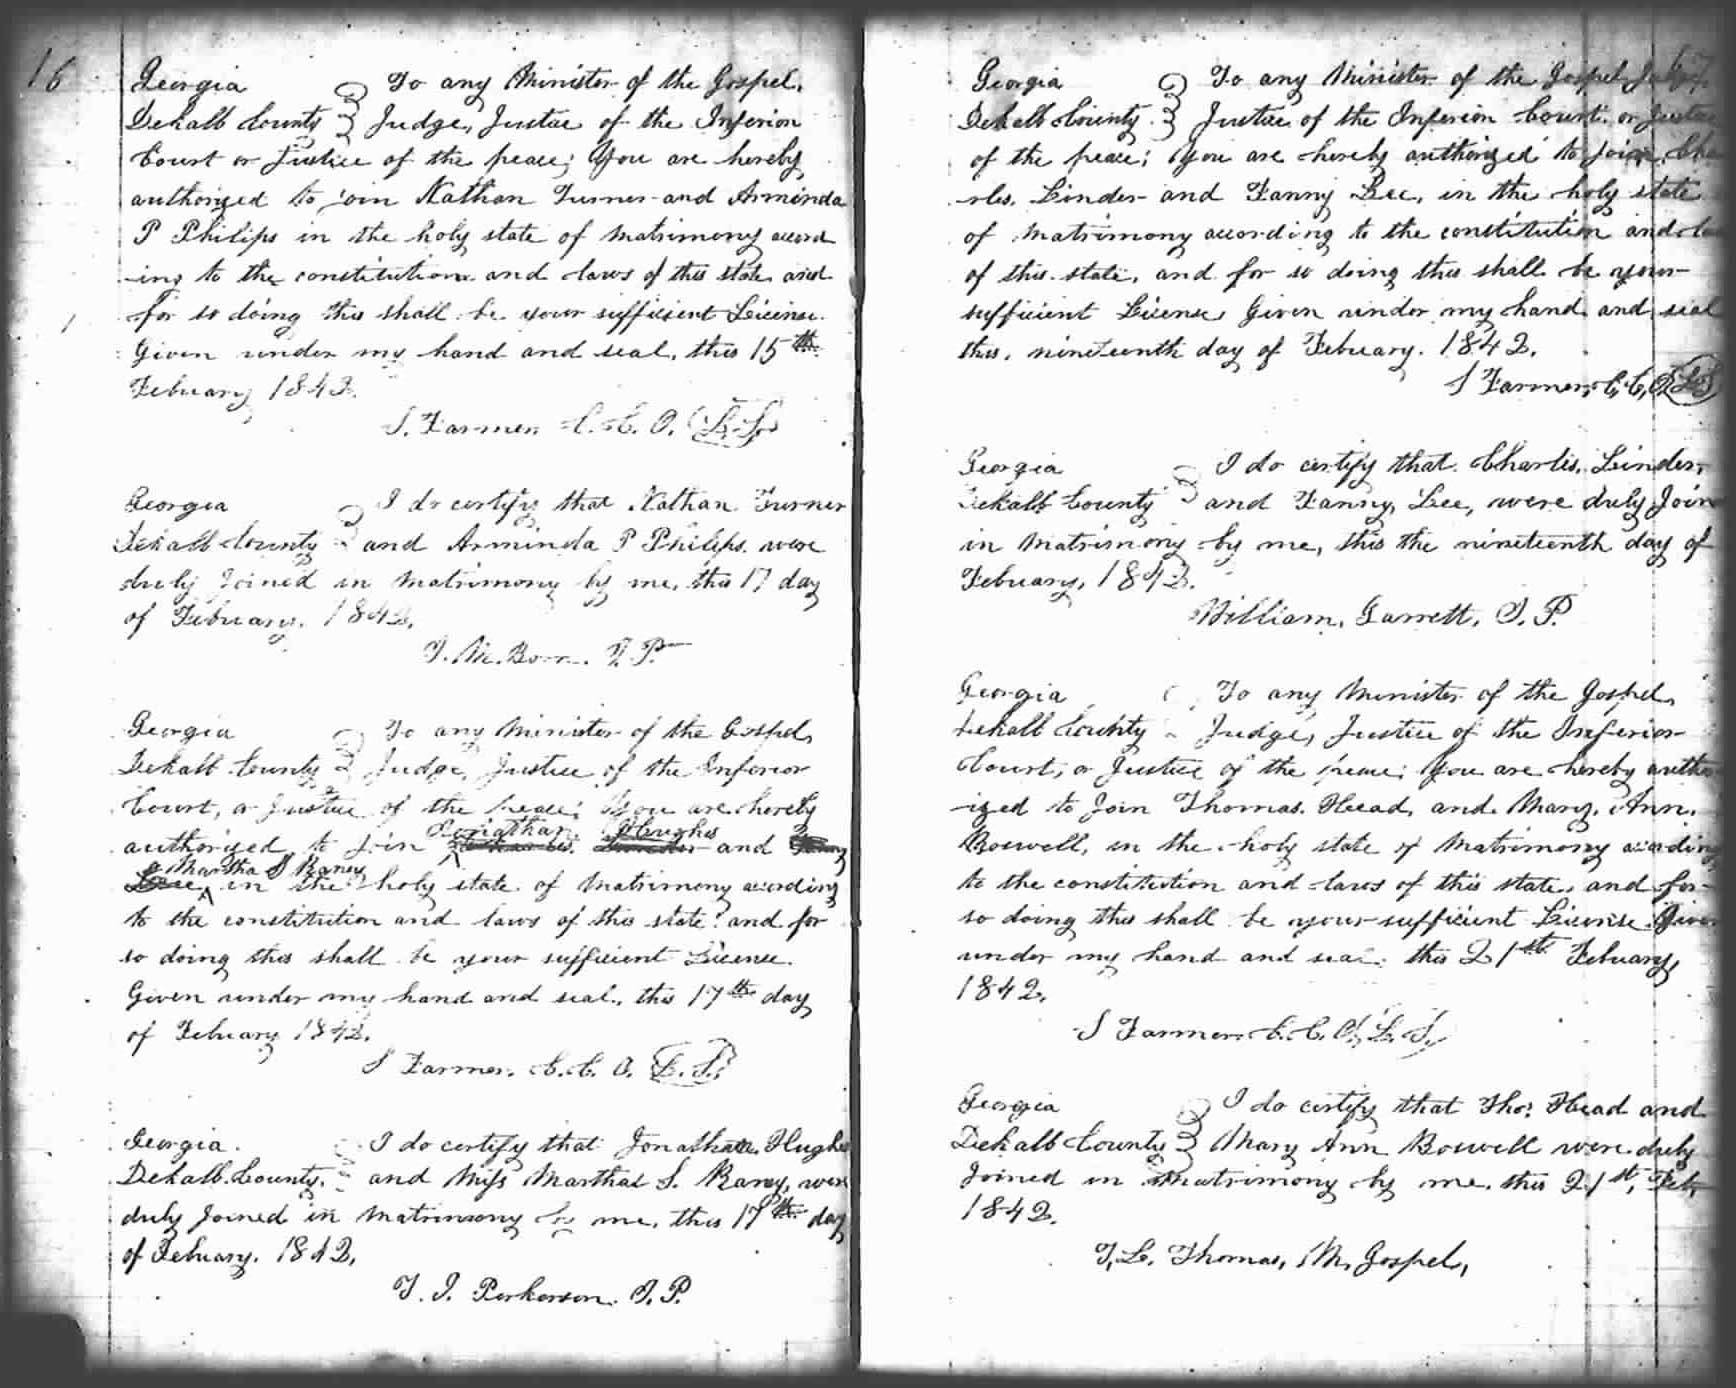 16
Georgia To any Minister of the Gospel,
Dekalb County Judge, Justice of the Inferior
Court or Justice of the peace; You are hereby
authorized to join Nathan Turner and Arminda
P Philips in the holy state of Matrimony accord
-ing to the constitution and laws of this state and
for so doing this shall be your sufficient License.
Given under my hand and seal, this 15th
Febuary 1842.
S. Farmer C. C. O. (L. S.)
Georgia I do certify that Nathan Turner
Dekalb County and Arminda P Philips were
duly Joined in Matrimony by me, this 17 day
of Febuary. 1842.
J. M. Born. J. P.
Georgia To any Minister of the Gospel,
Dekalb County Judge, Justice of the Inferior
Court, or Justice of the peace; You are hereby
Jonathan Hughes
authorized to join Charles Linder and Fanny
Martha S Raney
Lee, in the holy state of Matrimony according
to the constitution and laws of this state. and for
so doing this shall be your sufficient License.
Given under my hand and seal, this 17th day
of Febuary 1842.
S Farmer. C. C. O. (L. S.)
Georgia. I do certify that Jonathan Hughes
Dekalb County. and Miss Marthat S. Raney, were
duly Joined in Matrimony by me, this 17th day
of Febuary. 1842.
T. J. Perkerson. J. P.
Georgia To any Minister of the Gospel Judge,
Dekalb County. Justice of the Inferior Court. or Justice
of the peace; You are hereby authorized to join Cha
-rles. Linder and Fanny Lee, in the holy state
of Matrimony according to the constitution and
of this state, and for so doing this shall be your
sufficient License, Given under my hand and seal
this, nineteenth day of Febuary. 1842.
S Farmer, C, C, O (L S)
Georgia I do certify that Charles, Linder,
Dekalb County and Fanny, Lee, were duly Join
in Matrimony by me, this the nineteenth day of
Febuary, 1842.
William, Garrett, J. P.
Georgia To any Minister of the Gospel,
Dekalb County Judge, Justice of the Inferior
Court, or Justice of the peace; You are hereby autho
-ized to Join Thomas. Head, and Mary, Ann,
Boswell, in the holy state of Matrimony according
to the constitution and laws of this state, and for
so doing this shall be your sufficient License. Given
under my hand and seal. this 21st Febuary,
1842.
S Farmer. C. C. O. (L. S.)
Georgia I do certify that Tho: Head and
Dekalb County Mary Ann Boswell were duly
Joined in Matrimony by me, this 21st, Feb,
1842.
T, L. Thomas, M, Gospel,